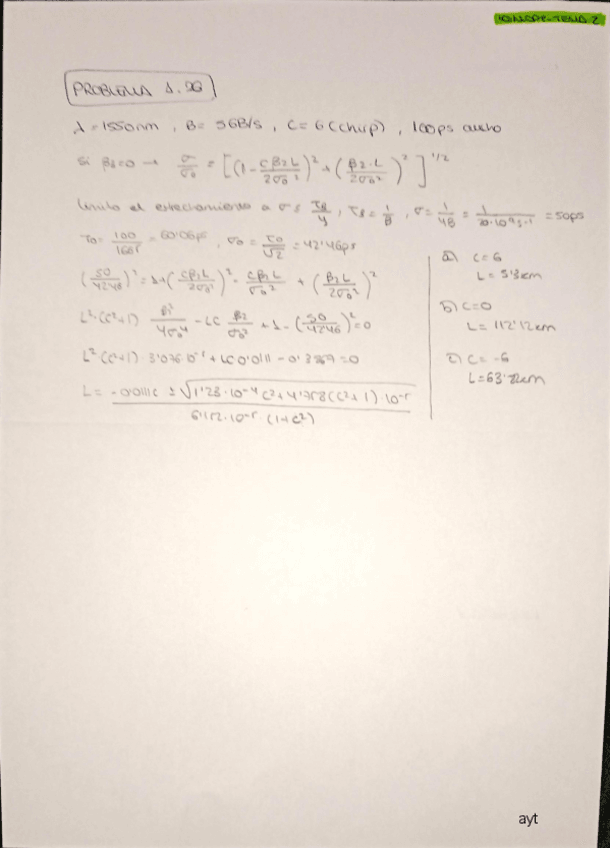 TEMA 2
PROBLEMA 1.26
λ=1550nm, B= 5GB/s, C= 6 (chirp), 100ps ancho
Si β3=0 → σ/σ0 = [(1 - Cβ2L/2σ0²)² + (β2·L/2σ0²)²]^1/2
Limito el estrechamiento a σ ≤ TB/4, TB = 1/B, σ = 1/4B = 1/20·10⁹s-1 = 50ps
T0 = 100/1'665 = 60'06ps, σ0 = T0/√2 = 42'46ps
(50/42'46)² = 1+(Cβ2L/2σ0²)² - Cβ2L/σ0² + (β2L/2σ0²)²
L²·(C²+1) β2²/4σ0⁴ - LC β2/σ0² + 1 - (50/42'46)² = 0
L² (C²+1)· 3'076·10⁻⁵ + LC 0'0111 - 0'3869 = 0
L = -0'0111C ± √1'23·10⁻⁴ C² + 4'758 (C²+1)·10⁻⁵ / 6'152·10⁻⁵ (1+C²)
a) C=6
L= 5'13km
b) C=0
L= 112'12km
c) C= -6
L=63'82km
ayt